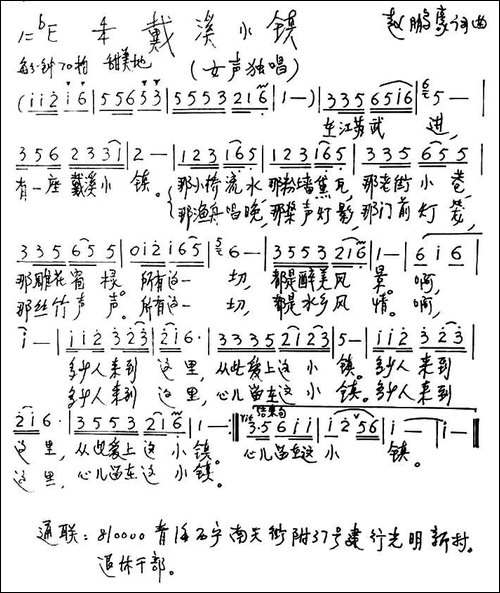 1=bE 2/4 戴溪小镇 赵鹏豪词曲
每分钟70拍 甜美地 (女声独唱)
(i i 2 i 6 | 5 5 6 5 3 | 5 5 5 3 2 1 6 | 1 —) | 3 3 5 6 5 i 6 | 5 — |
在江苏武 进,
3 5 6 2 3 3 1 | 2 — | 1 2 3 1 6 5 | 1 2 3 1 6 5 | 3 3 5 6 5 5 |
有一座戴溪小 镇。 那小桥流水 那粉墙黛瓦, 那老街小 巷,
那渔舟唱晚, 那桨声灯影, 那门前灯 笼,
3 3 5 6 5 5 | 0 i 2 i 6 5 | 6 — | 3 5 5 3 2 1 6 | 1 — | 6 i 6 |
那雕花窗 棂。 所有这一 切, 都是醉美风 景。 啊,
那丝竹声 声。 所有这一 切, 都是水乡风 情。 啊,
i — | i i 2 3 2 3 | 2 i 6 · | 3 3 3 5 2 1 2 3 | 5 — | i i 2 3 2 3 |
多少人来到 这里, 从此爱上这小 镇。 多少人来到
多少人来到 这里, 心儿留在这小 镇。 多少人来到
2 i 6 · | 3 5 5 3 2 1 6 | 1 — :‖ 结束句 3 · 5 6 i i | i 2 5 6 | i — | i — ‖
这里, 从此爱上这 小镇。 心儿留在这 小 镇。
这里, 心儿留在这 小镇。
通联: 810000 青海西宁南关街附37号建行光明新村。
退休干部。